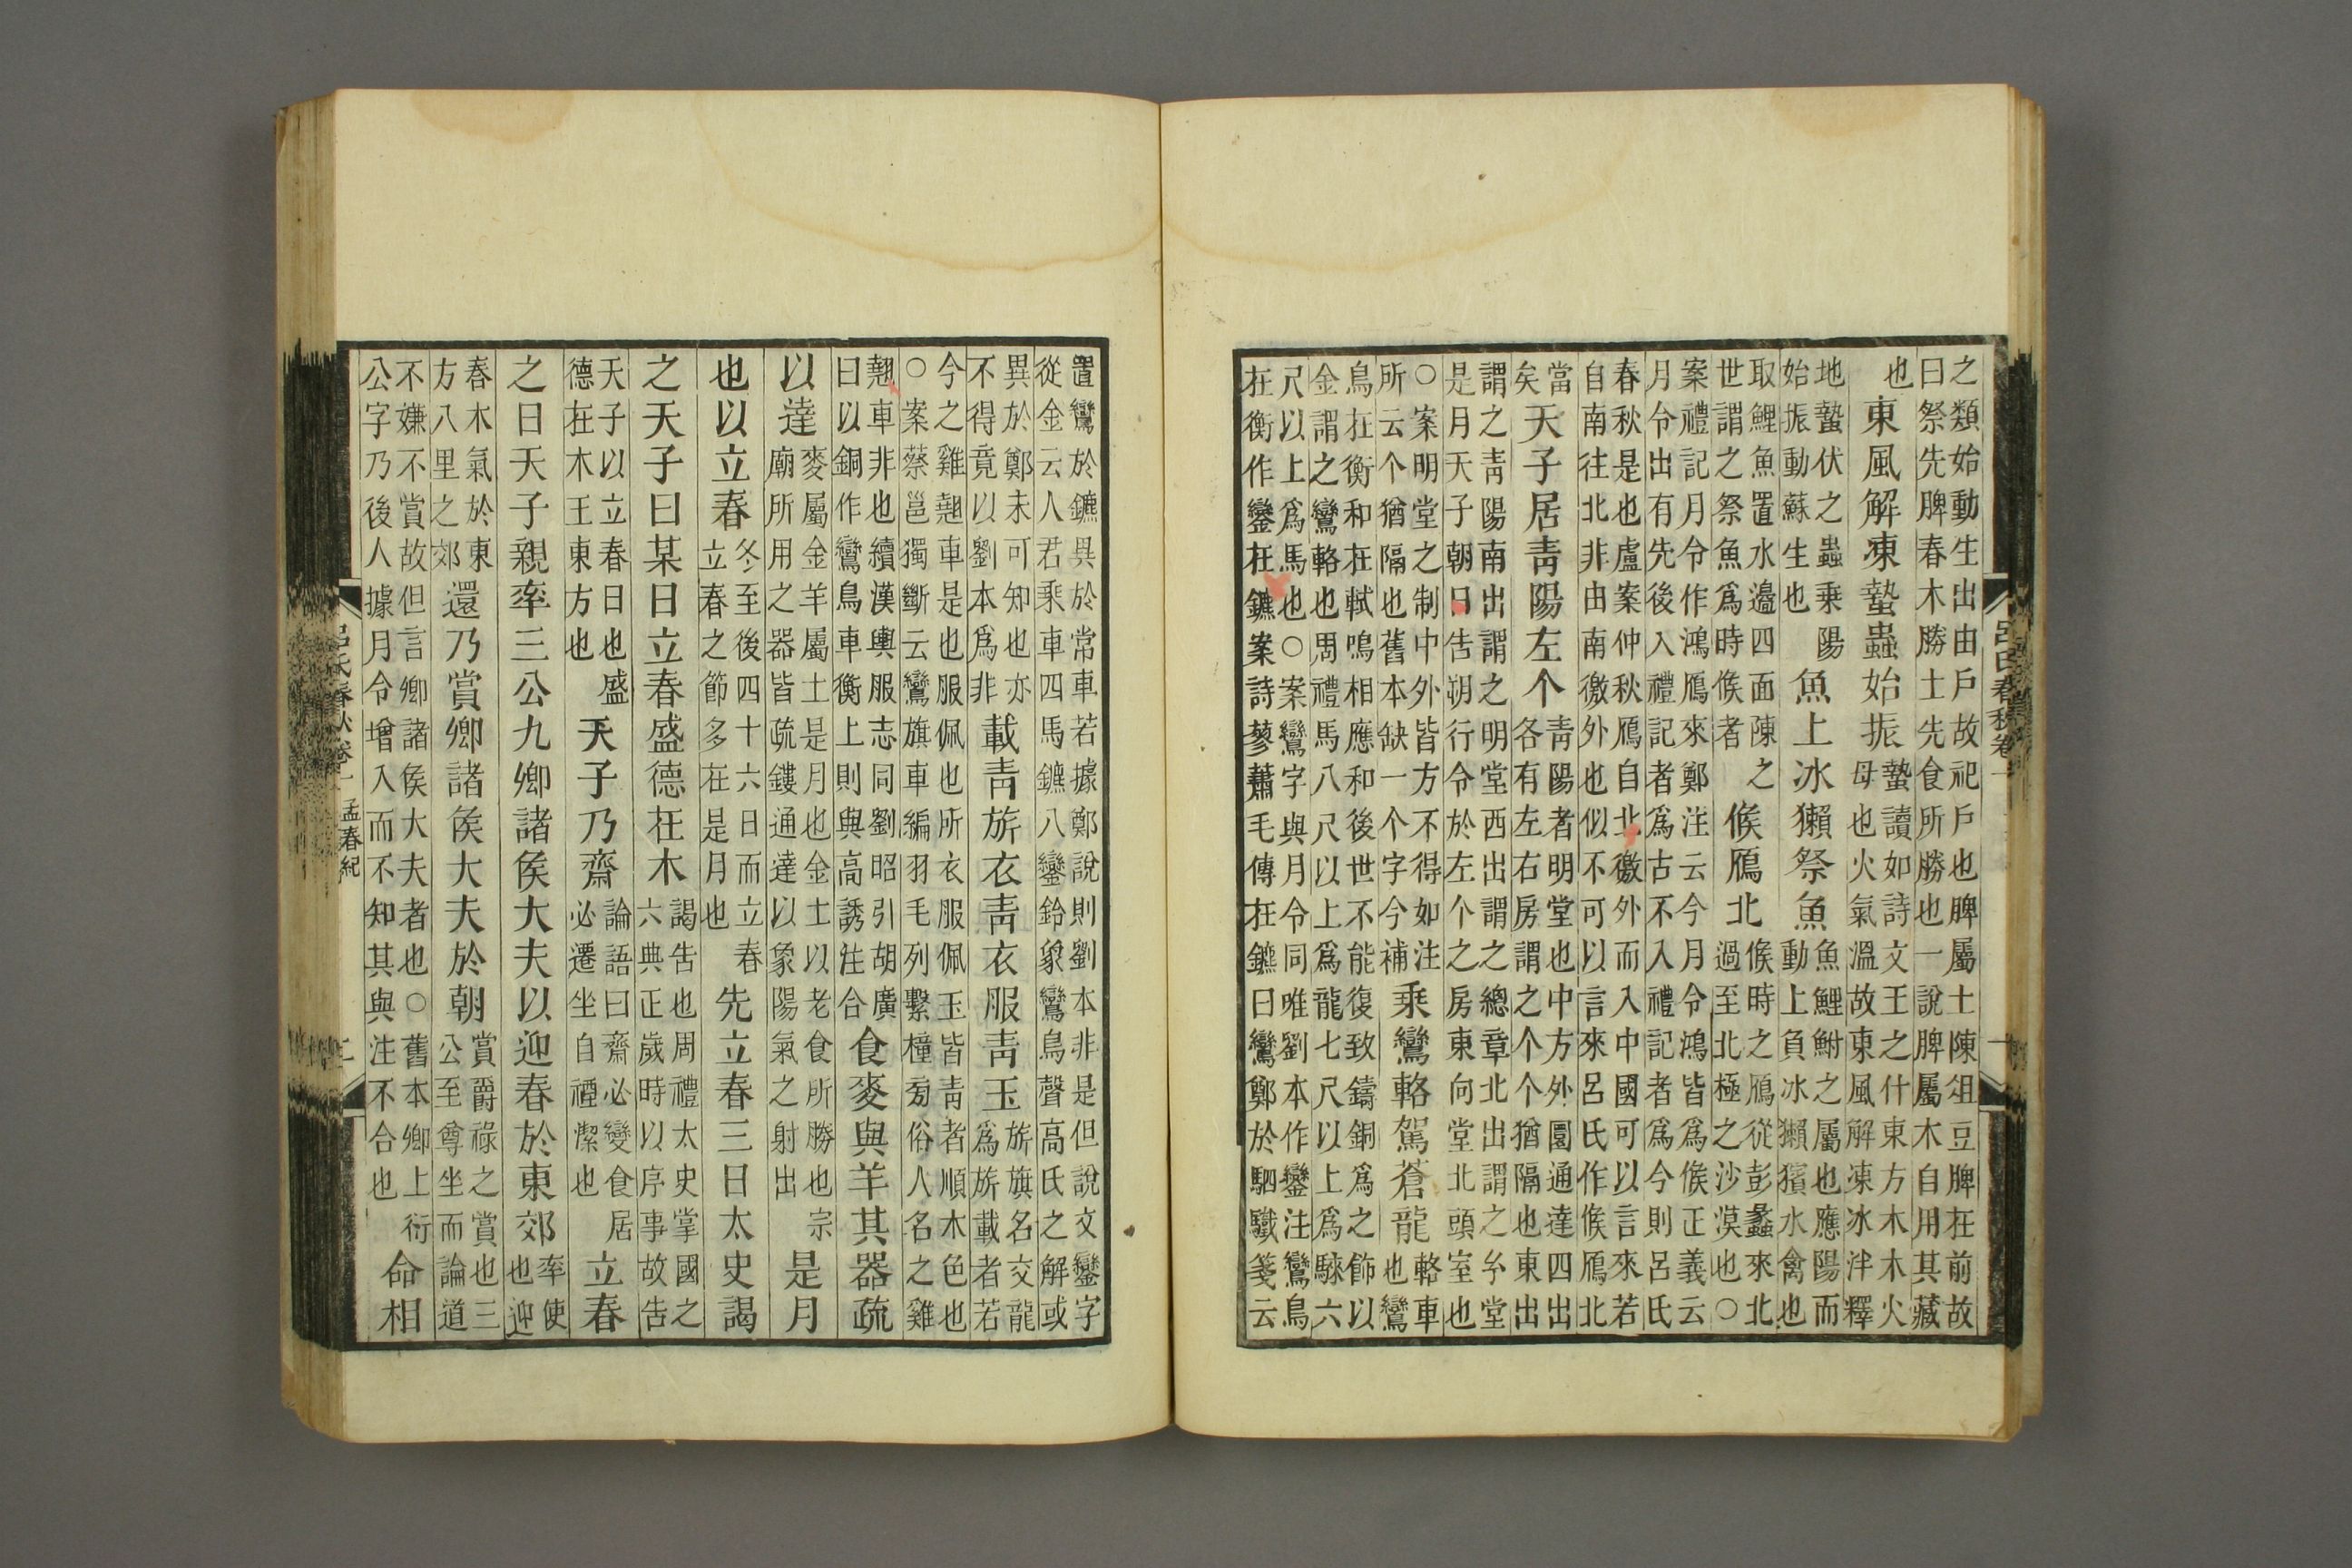 之類始動生出由戶故祀戶也脾屬土陳俎豆脾在前故
曰祭先脾春木勝土先食所勝也一說脾屬木自用其藏
也東風解凍蟄蟲始振蟄讀如詩文王之什東方木木火母也火氣溫故東風解凍冰泮釋
地蟄伏之蟲乘陽始振動蘇生也魚上冰獺祭魚魚鯉鮒之屬也應陽而動上負冰獺獱水禽也
取鯉魚置水邊四面陳之世謂之祭魚爲時候者候鴈北候時之鴈從彭蠡來北過至北極之沙漠也○
案禮記月令作鴻鴈來鄭注云今月令鴻皆爲候正義云
月令出有先後入禮記者爲古不入禮記者爲今則呂氏
春秋是也盧案仲秋鴈自北徼外而入中國可以言來若
自南往北非由南徼外也似不可以言來呂氏作候鴈北
當矣天子居青陽左个青陽者明堂也中方外圜通達四出各有左右房謂之个个猶隔也東出
謂之青陽南出謂之明堂西出謂之總章北出謂之玄堂
是月天子朝日告朔行令於左个之房東向堂北頭室也
○案明堂之制中外皆方不得如注所云个猶隔也舊本缺一个字今補乘鸞輅駕蒼龍輅車也鸞
鳥在衡和在軾鳴相應和後世不能復致鑄銅爲之飾以
金謂之鸞輅也周禮馬八尺以上爲龍七尺以上爲騋六
尺以上爲馬也○案鸞字與月令同唯劉本作鑾注鸞鳥
在衡作鑾在鑣案詩蓼蕭毛傳在鑣曰鸞鄭於駟驖箋云
呂氏春秋卷一
置鸞於鑣異於常車若據鄭說則劉本非是但說文鑾字
從金云人君乘車四馬鑣八鑾鈴象鸞鳥聲高氏之解或
異於鄭未可知也亦不得竟以劉本爲非載青旂衣青衣服青玉旂旗名交龍爲旂載者若
今之雞翹車是也服佩也所衣服佩玉皆青者順木色也
○案蔡邕獨斷云鸞旗車編羽毛列繫橦旁俗人名之雞
翹車非也續漢輿服志同劉昭引胡廣曰以銅作鸞鳥車衡上則與高誘注合食麥與羊其器疏
以達麥屬金羊屬土是月也金土以老食所勝也宗廟所用之器皆疏鏤通達以象陽氣之射出是月
也以立春冬至後四十六日而立春立春之節多在是月也先立春三日太史謁
之天子曰某日立春盛德在木謁告也周禮太史掌國之六典正歲時以序事故告
天子以立春日也盛德在木王東方也天子乃齋論語曰齋必變食居必遷坐自禋潔也立春
之日天子親率三公九卿諸侯大夫以迎春於東郊率使也迎
春木氣於東方八里之郊還乃賞卿諸侯大夫於朝賞爵祿之賞也三公至尊坐而論道
不嫌不賞故但言卿諸侯大夫者也○舊本卿上衍公字乃後人據月令增入而不知其與注不合也命相
呂氏春秋卷一 孟春紀